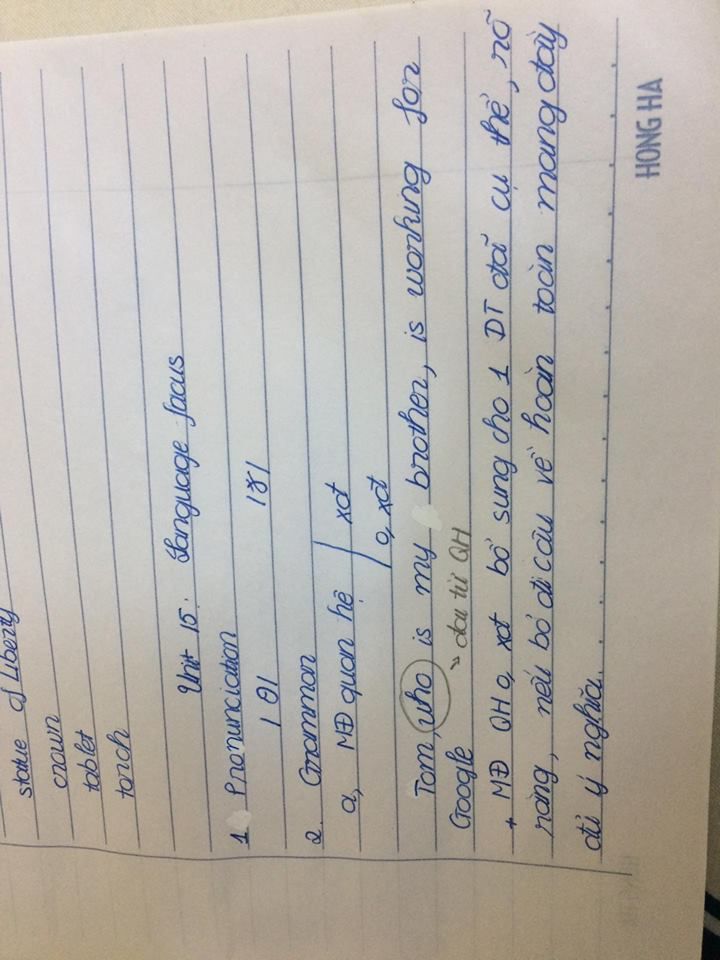 statue of Liberty
crown
tablet
torch
Unit 15: Language focus
1. Pronunciation
/θ/ /ð/
2. Grammar
a, MĐ quan hệ xđ
o, xđ
Tom, who is my brother, is working for
Google → đại từ QH
+ MĐ QH o, xđ bổ sung cho 1 DT đã cụ thể, rõ
ràng, nếu bỏ đi câu vẽ hoàn toàn mang đầy
đủ ý nghĩa.
HONG HA